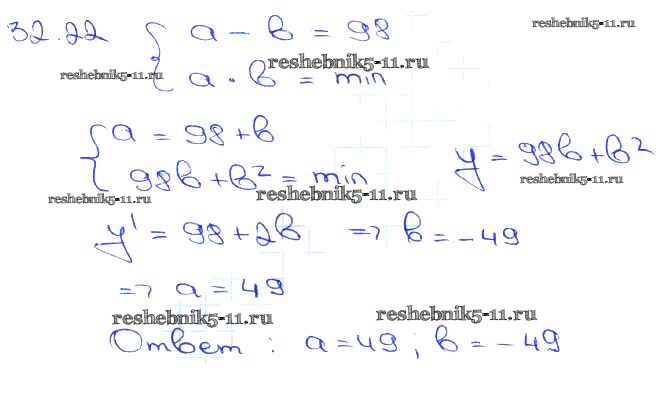 32.22 { a - b = 98
reshebnik5-11.ru
reshebnik5-11.ru
reshebnik5-11.ru
a · b = min
{ a = 98 + b
98b + b² = min
y = 98b + b²
reshebnik5-11.ru
reshebnik5-11.ru
reshebnik5-11.ru
y' = 98 + 2b => b = -49
=> a = 49
reshebnik5-11.ru
reshebnik5-11.ru
Ответ : a = 49 ; b = -49